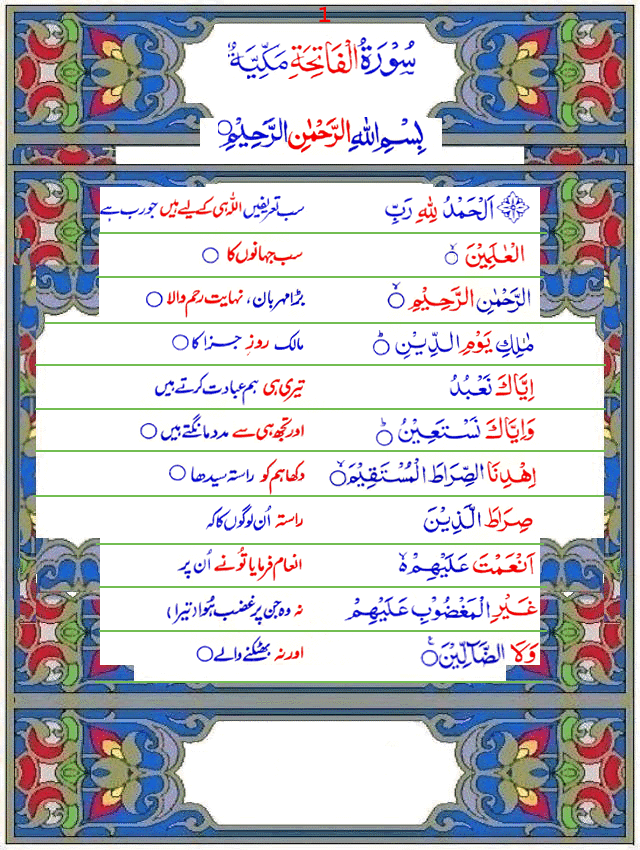 1
سُوْرَۃُ الْفَاتِحَۃِ مَکِّیَّۃٌ
بِسْمِ اللّٰهِ الرَّحْمٰنِ الرَّحِیْمِ○
اَلْحَمْدُ لِلّٰهِ رَبِّ سب تعریفیں اللہ ہی کے لیے ہیں جو رب ہے
الْعٰلَمِیْنَ ○ۙ سب جہانوں کا ○
الرَّحْمٰنِ الرَّحِیْمِ ○ۙ بڑا مہربان، نہایت رحم والا ○
مٰلِکِ یَوْمِ الدِّیْنِ ○ؕ مالک روزِ جزا کا ○
اِیَّاکَ نَعْبُدُ تیری ہی ہم عبادت کرتے ہیں
وَاِیَّاکَ نَسْتَعِیْنُ ○ؕ اور تجھ ہی سے مدد مانگتے ہیں ○
اِهْدِنَا الصِّرَاطَ الْمُسْتَقِیْمَ ○ۙ دکھا ہم کو راستہ سیدھا ○
صِرَاطَ الَّذِیْنَ راستہ اُن لوگوں کا کہ
اَنْعَمْتَ عَلَیْهِمْ ۙ۬ انعام فرمایا تُو نے اُن پر
غَیْرِ الْمَغْضُوْبِ عَلَیْهِمْ نہ وہ جن پر غضب ہُوا (تیرا)
وَلَا الضَّآلِّیْنَ ○۠ اور نہ بھٹکنے والے ○